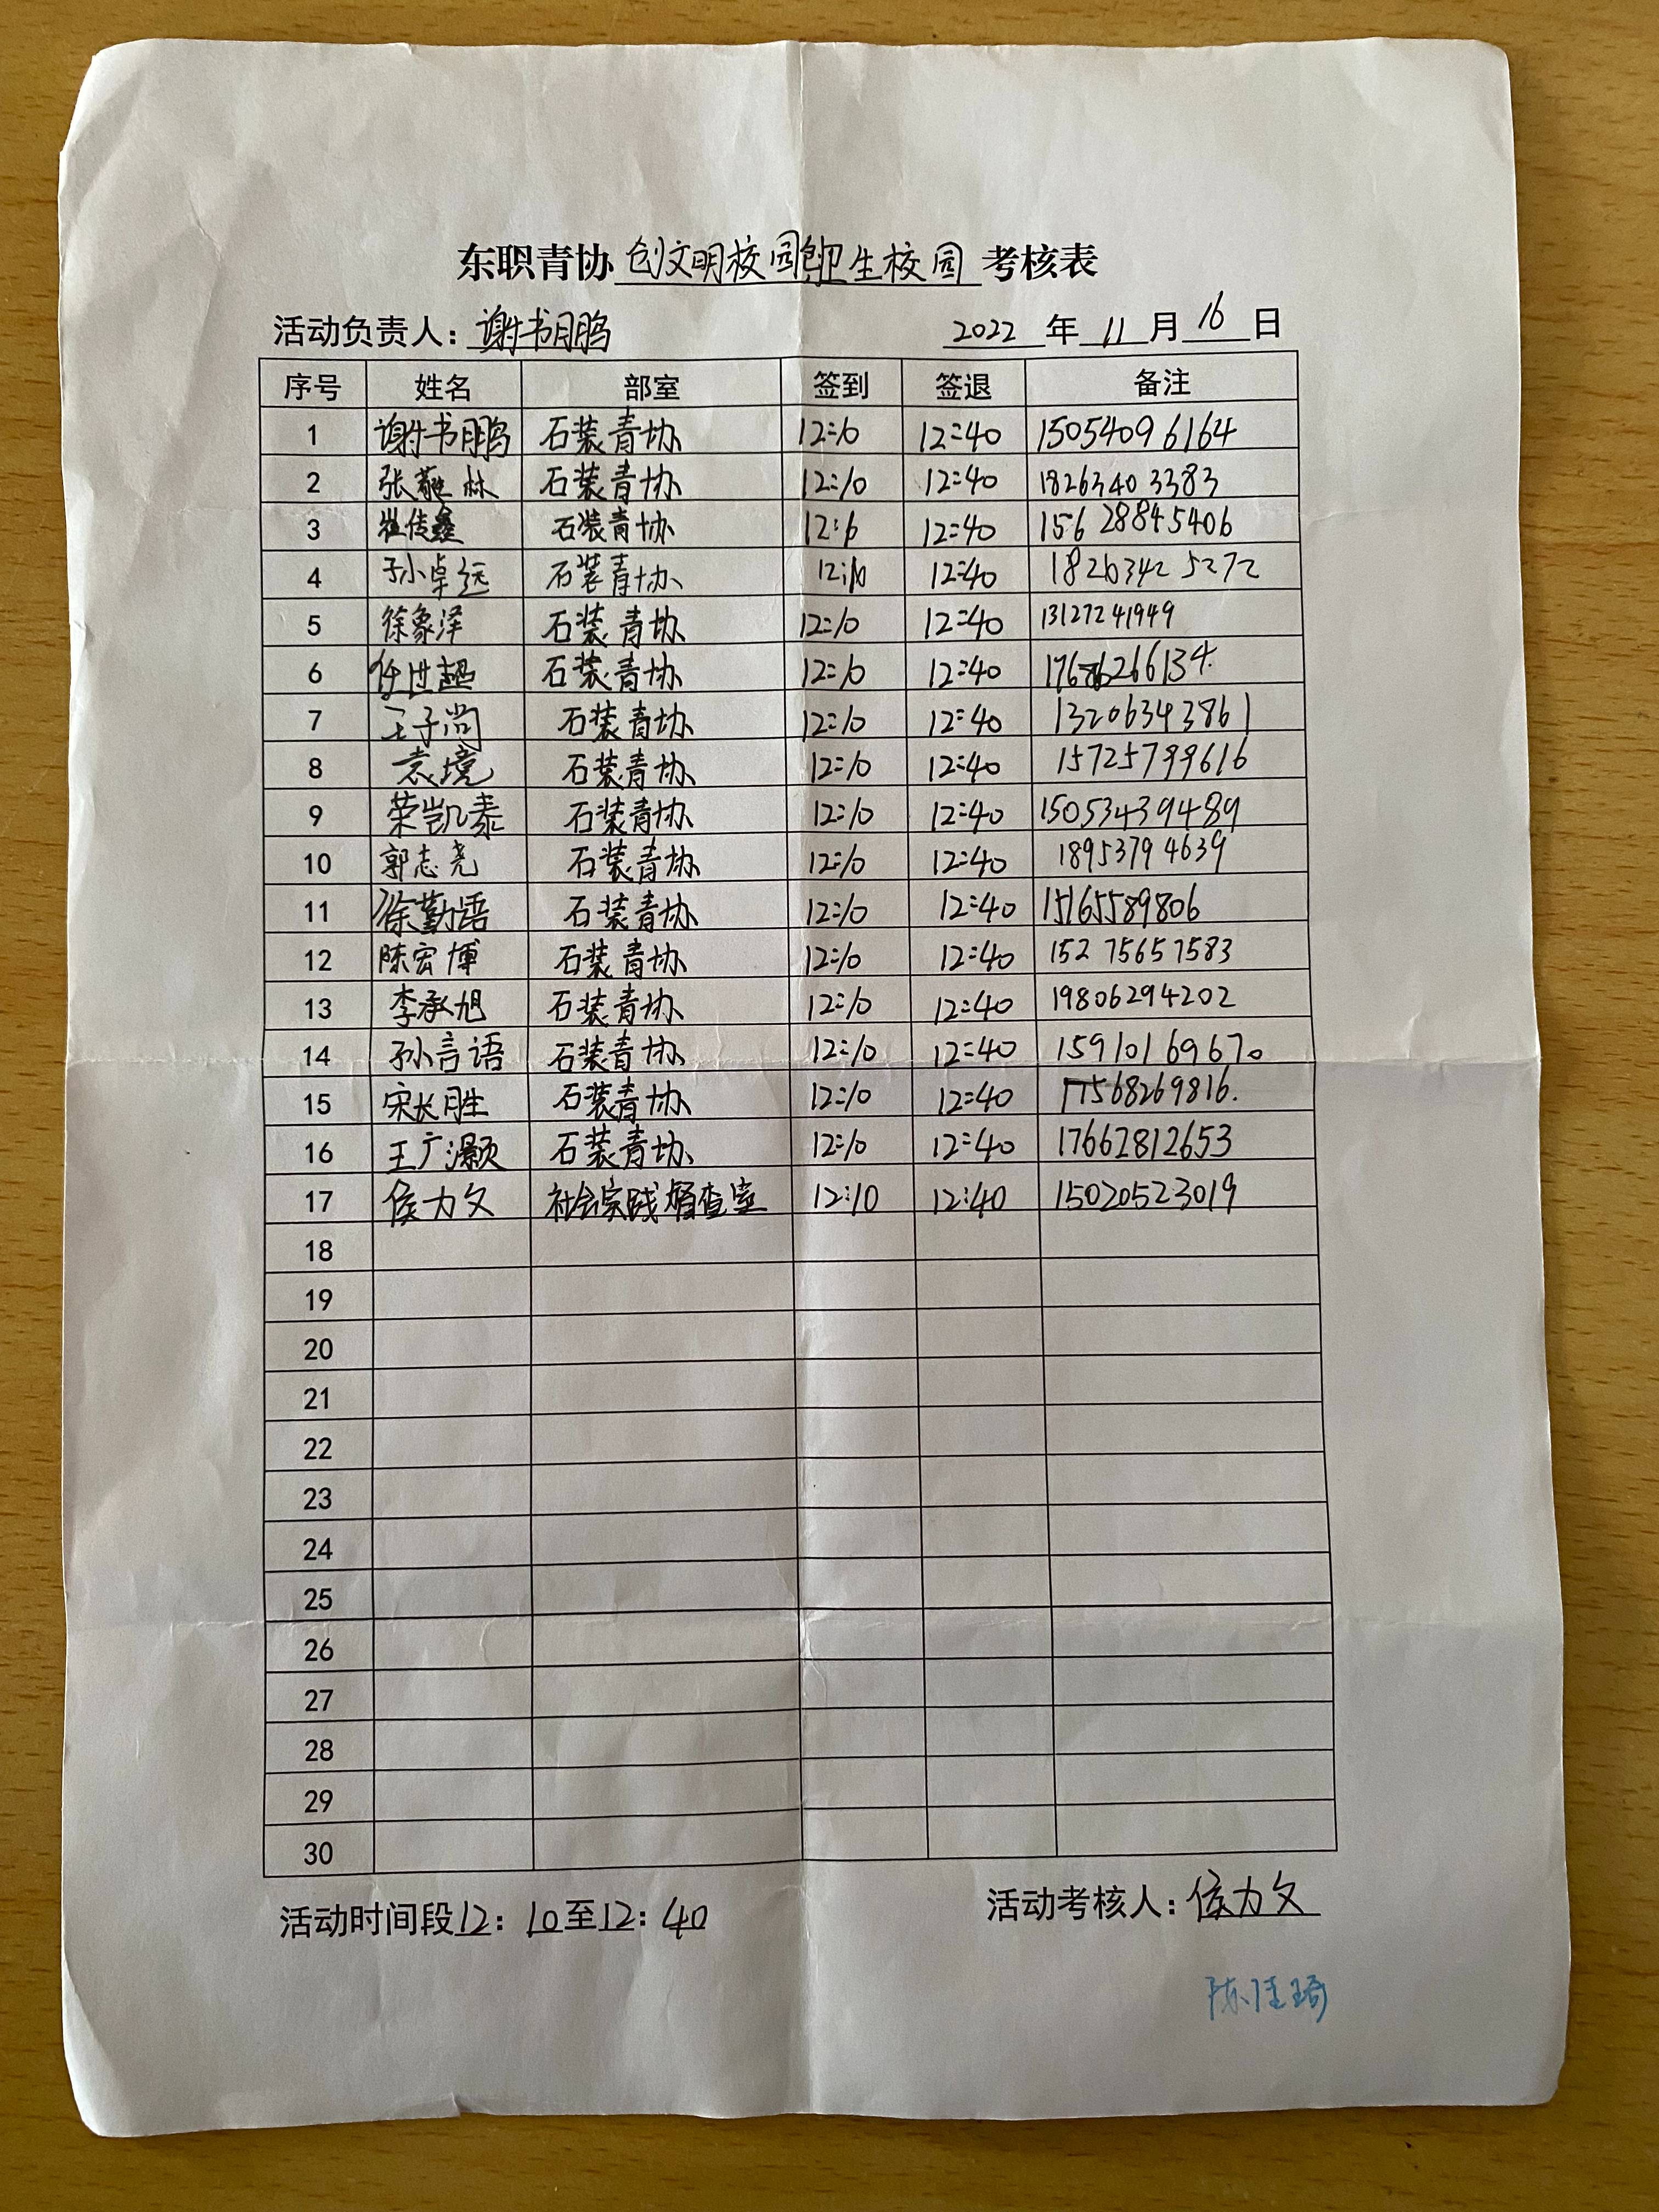 东职青协创文明校园创卫生校园考核表
活动负责人：谢书鹏 2022年11月16日
序号 姓名 部室 签到 签退 备注
1 谢书鹏 石装青协 12:10 12:40 15054096164
2 张 林 石装青协 12:10 12:40 18263403383
3 崔传鑫 石装青协 12:10 12:40 15628845406
4 孙卓远 石装青协 12:10 12:40 18263425272
5 徐象泽 石装青协 12:10 12:40 13127241949
6 任世超 石装青协 12:10 12:40
7 王子尚 石装青协 12:10 12:40 13206343861
8 袁境 石装青协 12:10 12:40 15725799616
9 荣凯泰 石装青协 12:10 12:40 15053439489
10 郭志尧 石装青协 12:10 12:40 18953794639
11 徐勤语 石装青协 12:10 12:40 15165589806
12 陈宏博 石装青协 12:10 12:40 15275657583
13 李承旭 石装青协 12:10 12:40 19806294202
14 孙言语 石装青协 12:10 12:40 15910169670
15 宋长胜 石装青协 12:10 12:40 17568269816.
16 王广灏 石装青协 12:10 12:40 17662812653
17 侯力文 社会实践督查室 12:10 12:40 15020523019
18
19
20
21
22
23
24
25
26
27
28
29
30
活动时间段12：10至12：40 活动考核人：侯力文
陈佳琦